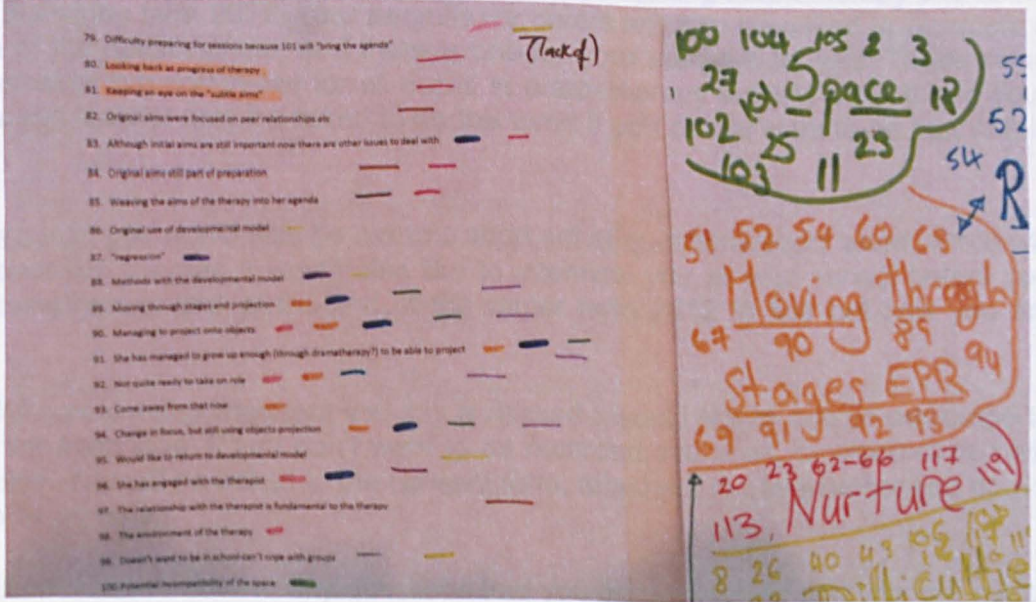 79. Difficulty preparing for sessions because 101 will "bring the agenda"
(lack of)
80. Looking back as progress of therapy
81. Keeping an eye on the "subtle aims"
82. Original aims were focused on peer relationships etc
83. Although initial aims are still important now there are other issues to deal with
84. Original aims still part of preparation
85. Weaving the aims of the therapy into her agenda
86. Original use of developmental model
87. "regression"
88. Methods with the developmental model
89. Moving through stages and projection
90. Managing to project onto objects
91. She has managed to grow up enough (through dramatherapy?) to be able to project
92. Not quite ready to take on role
93. Come away from that now
94. Change in focus, but still using objects projection
95. Would like to return to developmental model
96. She has engaged with the therapist
97. The relationship with the therapist is fundamental to the therapy
98. The environment of the therapy
99. Doesn't want to be in school-can't cope with groups
100. Potential incompatibility of the space
100 104 105 2 3
27 101 Space 18
102 25 23
103 11
55
52
54
R
51 52 54 60 68
Moving through
67 90 89
Stages EPR 94
69 91 92 93
20 23 62-66 117
113, Nurture 119
8 26 40 43